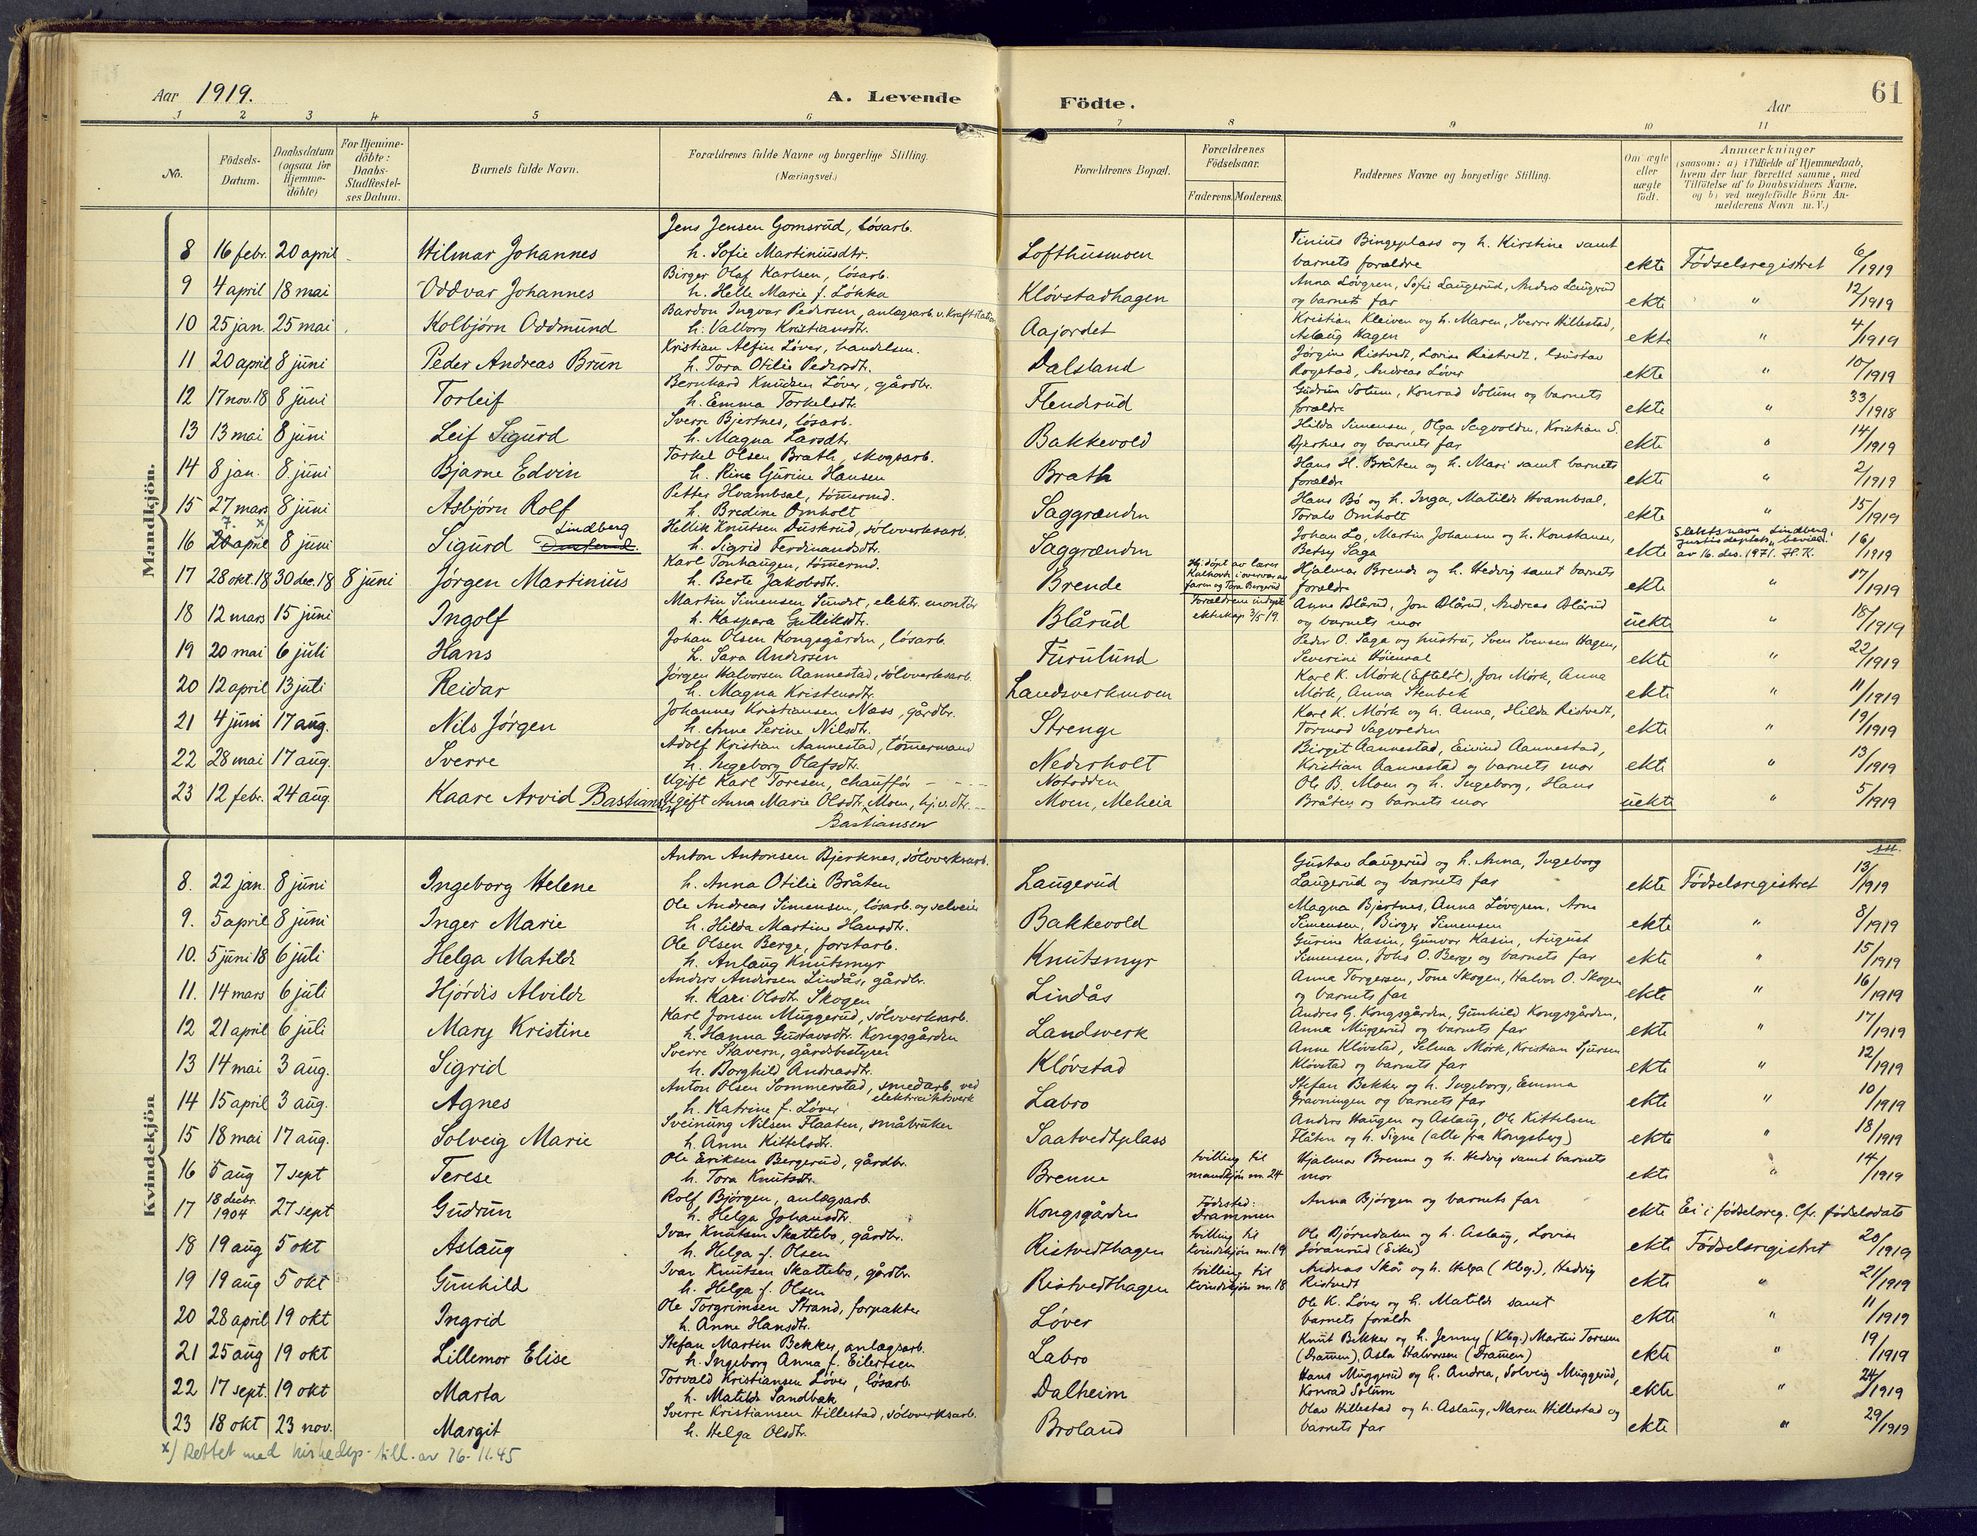 Aar 1919.
A. Levende Födte.
Aar
61
1 2 3 4 5 6 7 8 9 10 11
No.
Födsels-Datum.
Daabsdatum (ogsaa for Hjemmedöbte)
For Hjemmedöbte: Daabs-Stadfæstelses Datum.
Barnets fulde Navn.
Forældrenes fulde Navne og borgerlige Stilling. (Næringsvei.)
Forældrenes Bopæl.
Forældrenes Födselsaar.
Faderens. Moderens.
Faddernes Navne og borgerlige Stilling.
Om ægte eller uægte födt.
Anmærkninger
(saasom: a) i Tilfælde af Hjemmedaab,
hvem der har forrettet samme, med
Tilföielse af to Daabsvidners Navne,
og b) ved uegtefödte Börn An-
melderens Navn m. V.)
Mandkjön.
8 16 febr. 20 april Hilmar Johannes Jens Jensen Gomsrud, løsarb. h. Sofie Martiniusdtr. Lofthusmoen Tinius Bingeplass og h. Kirstine samt barnets forældre ekte Fødselsregistret 6/1919
9 4 april 18 mai Oddvar Johannes Birger Olaf Karlsen, løsarb. h. Helle Marie f. Løkka Kløvstadhagen Anna Løvgren, Sofie Laugerud, Anders Laugerud og barnets far ekte " 12/1919
10 25 jan. 25 mai Kolbjørn Oddmund Bardon Ingvar Pedersen, anlagsarb. v. Kraftstation h. Valborg Kristiansdtr. Aajordet Kristian Kleiven og h. Maren, Sverre Hillestad, Aslaug Hagen ekte " 4/1919
11 20 april 8 juni Peder Andreas Brun Kristian Alfin Løver, handelsm. h. Tora Otilie Pedersdtr. Dalsland Jørgine Ristvedt, Lovise Ristvedt, Gustav Rogstad, Andreas Løver ekte " 10/1919
12 17 nov. 18 8 juni Torleif Bernhard Knudsen Løver, gårdbr. h. Emma Torkelsdtr. Flenderud Gudrun Solum, Konrad Solum og barnets forældre ekte " 33/1918
13 13 mai 8 juni Leif Sigurd Sverre Bjertnes, løsarb. h. Magna Larsdtr. Bakkevold Hilda Simensen, Olga Sagvolden, Kristian S. Bjertnes og barnets far ekte " 14/1919
14 8 jan. 8. juni Bjarne Edvin Torkel Olsen Brath, skogsarb. h. Kine Gurine Hansen Brath Hans H. Bråten og h. Mari samt barnets forældre ekte " 2/1919
15 27 mars 8 juni Asbjørn Rolf Petter Hvambsal, tømermd. h. Bredine Omholt Saggrænden Hans Bø og h. Inga, Matilde Hvambsal, Torals Omholt ekte " 15/1919
16 7. 20 april x) 8 juni Sigurd Lindberg Hellik Knutsen Duskrud, sølvverksarb. h. Sigrid Ferdinandsdtr. Saggrænden Johan Lø, Martin Johansen og h. Konstanse, Betsy Saga ekte Slektsnavn Lindberg justisdepts. bevill. av 16. des. 1971. H.K. 16/1919
17 28 okt. 18 30 dec. 18 8 juni Jørgen Martinius Karl Tonhaugen, tømermd. h. Berte Jakobsdtr. Brende Hj. døpt av lærer Kulhovh i overvær av faren og Tora Bergrud Hjalmar Brende og h. Hedvig samt barnets forældre ekte " 17/1919
18 12 mars 15 juni Ingolf Martin Simensen Sundet, elektr. montør h. Kaspara Gulliksdtr. Blårud Forældrene indgik ekteskap 3/5 19. Anne Blårud, Jon Blårud, Andreas Blårud og barnets mor uekte " 18/1919
19 20 mai 6 juli Hans Johan Olsen Kongsgården, løsarb. h. Sara Andersen Furulund Peder O. Saga og hustru, Sven Svensen Hagen, Severine Høienval ekte " 22/1919
20 12 april 13 juli Reidar Jørgen Halvorsen Aannestad, sølvverksarb. h. Magna Kristensdtr. Landsverkmoen Karl K. Mørk (Efteløt), Jon Mørk, Anna Mørk, Anna Stenbek ekte " 11/1919
21 4 juni 17 aug. Nils Jørgen Johannes Kristiansen Næss, gårdbr. h. Anne Serine Nilsdtr. Strenge Karl K. Mørk og h. Anna, Hilda Ristvedt, Tormod Sagvolden ekte " 19/1919
22 28 mai 17 aug. Sverre Adolf Kristian Aannestad, tømermand h. Ingeborg Olafsdtr. Nederholt Birgit Aannestad, Eivind Aannestad, Kristian Aannestad og barnets mor ekte " 13/1919
23 12 febr. 24 aug. Kaare Arvid Bastiansen Ugift Karl Toresen, chauffør Ugift Anna Marie Olsdtr. Moen, hj.v.dtr. Bastiansen Notodden Moen, Meheia Ole B. Moen og h. Ingeborg, Hans Bråten og barnets mor uekte " 5/1919
Kvindekjön
8. 22 jan. 8 juni Ingeborg Helene Anton Antonsen Bjerknes, sølvverksarb. h. Anna Otilie Bråten Laugerud Gustav Laugerud og h. Anna, Ingeborg Laugerud og barnets far ekte Fødselsregistret 13/1919
9. 5 april 8 juni Inger Marie Ole Andreas Simensen, løsarb. og selveier h. Hilda Martine Hansdtr. Bakkevold Magna Bjertnes, Anna Løvgren, Arne Simensen, Birger Simensen ekte " 8/1919
10. 5 juni 18 6 juli Helga Matilde Ole Olsen Berge, forstarb. h. Anlaug Knutsmyr Knutsmyr Gurine Kasin, Gunvor Kasin, August Simensen, Johs O. Berge og barnets far ekte " 15/1919
11. 14 mars 6 juli Hjørdis Alvilde Anders Andersen Lindås, gårdbr. h. Kari Olsdtr. Skogen Lindås Anna Torgersen, Tone Skogen, Halvor O. Skogen og barnets far ekte " 16/1919
12 21 april 6 juli Mary Kristine Karl Jonsen Muggerud, sølvverksarb. h. Hanna Gustavsdtr. Kongsgården Landsverk Andres G. Kongsgården, Gunhild Kongsgården, Anna Muggerud og barnets far ekte " 17/1919
13 14 mai 3 aug. Sigrid Sverre Stavern, gårdsbestyrer h. Borghild Andreasdtr. Kløvstad Anne Kløvstad, Selma Mørk, Kristian Sjursen Kløvstad og barnets far ekte " 12/1919
14 15 april 3 aug. Agnes Anton Olsen Sommerstad, smedarb. ved elektricitetsverk h. Katrine f. Løver Labro Stefan Bekker og h. Ingeborg, Emma Gravningen og barnets far ekte " 10/1919
15 18 mai 17 aug. Solveig Marie Sveinung Nilsen Flaaten, småbruker h. Anne Kittelsdtr. Saatvedtplass Anders Haugen og Aslaug, Ole Kittelsen Flåten og h. Signe (alle fra Kongsberg) ekte " 18/1919
16 5 aug 7 sept Terese Ole Eriksen Bergerud, gårdbr. h. Tora Knutsdtr. Brenne tvilling til mandkjøn nr. 24 Hjalmar Brenne og h. Hedvig samt barnets mor ekte " 14/1919
17 18 decbr. 1904 27 sept Gudrun Rolf Bjørgen, anlagsarb h. Helga Johansdtr. Kongsgården Fødested: Drammen Anna Bjørgen og barnets far ekte Ei i fødselsreg. Cfr. fødselsdato
18 19 aug 5 okt Aslaug Ivar Knutsen Skattebo, gårdbr. h. Helga f. Olsen Ristvedthagen tvilling til kvindekjøn nr. 19 Ole Bjørndalen og h. Aslaug, Lovise Jøranrud (Eiker) ekte Fødselsregistret 20/1919
19 19 aug 5 okt Gunhild Ivar Knutsen Skattebo, gårdbr. h. Helga f. Olsen Ristvedthagen tvilling til kvindekjøn nr. 18 Andreas Skår og h. Helga (Kbg.), Hedvig Ristvedt ekte " 21/1919
20 28 april 19 okt Ingrid Ole Torgrimsen Strand, forpakter h. Anne Hansdtr. Løver Ole K. Løver og h. Matilde samt barnets forældre ekte " 11/1919
21 25 aug 19 okt Lillemor Elise Stefan Martin Bekker, anlagsarb. h. Ingeborg Anna f. Eilertsen Labro Knut Bekker og h. Jenny (Kbg.) Martin Toresen (Drammen), Asla Halvorsen (Drammen) ekte " 19/1919
22 17 sept. 19 okt Marta Torvald Kristiansen Løver, løsarb. h. Matilde Sandbæk Dalheim Hans Muggerud og h. Andrea, Solveig Muggerud, Konrad Solum ekte " 24/1919
23 18 okt 23 nov. Margit Sverre Kristiansen Hillestad, sølvverksarb. h. Helga Olsdtr. Broland Olav Hillestad og h. Aslaug, Maren Hillestad og barnets far ekte " 29/1919
x) Rettet med kirkedep. till. av 16-11.45